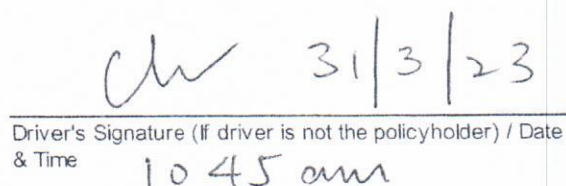 31/3/23
Driver's Signature (If driver is not the policyholder) / Date
& Time 1045 am